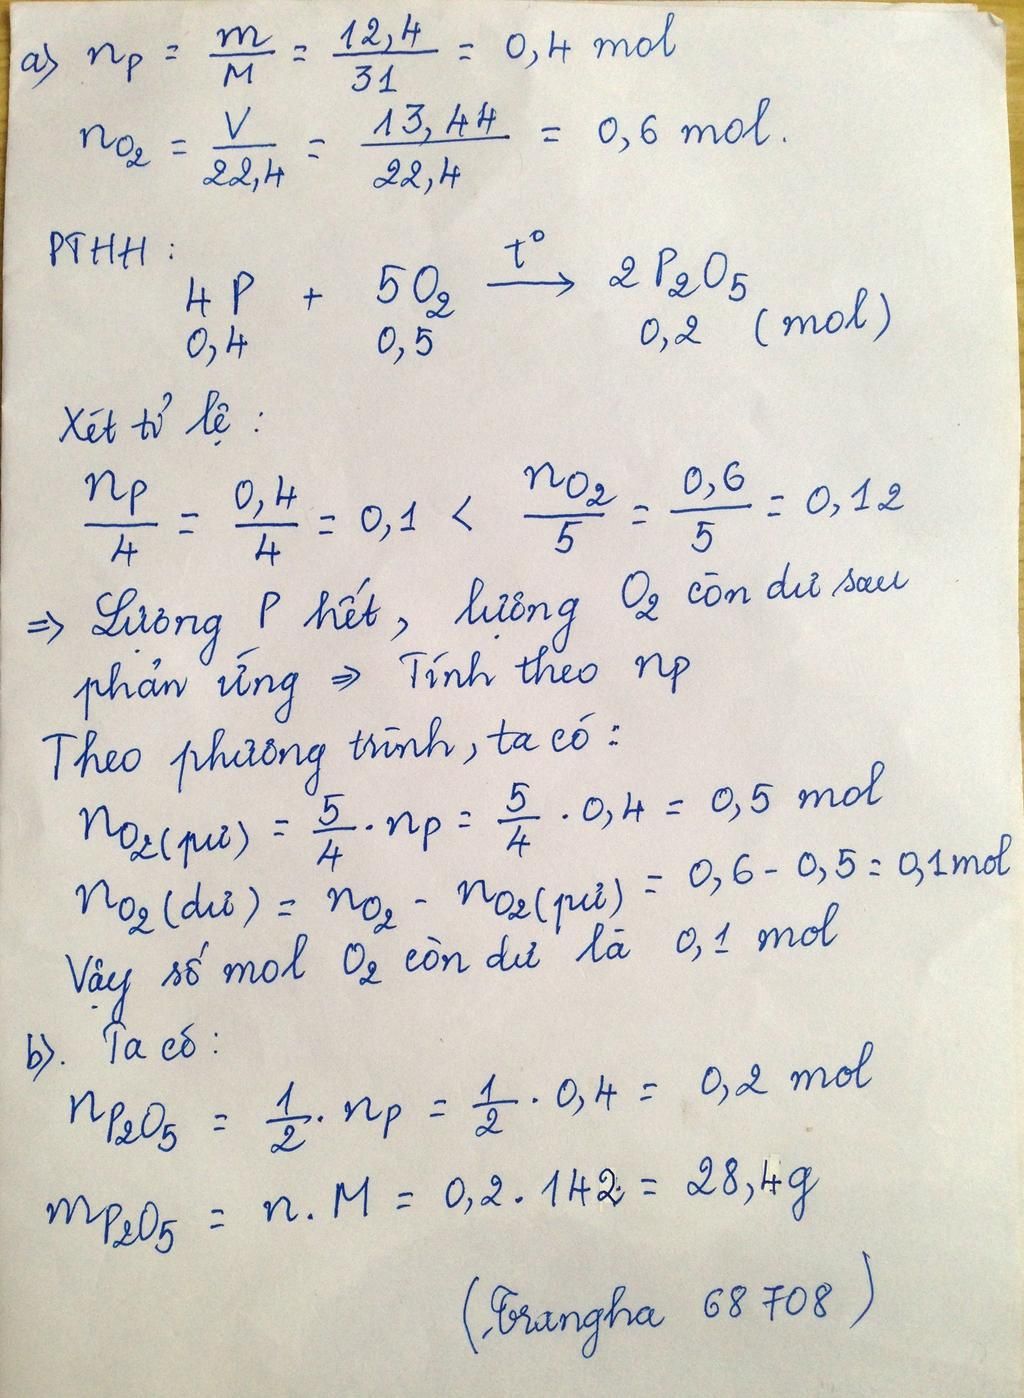 a) nP = m/M = 12,4/31 = 0,4 mol
nO2 = V/22,4 = 13,44/22,4 = 0,6 mol.
PTHH :
4P + 5O2 t° → 2P2O5
0,4 0,5 0,2 (mol)
Xét tỉ lệ :
nP/4 = 0,4/4 = 0,1 < nO2/5 = 0,6/5 = 0,12
⇒ Lượng P hết, lượng O2 còn dư sau
phản ứng ⇒ Tính theo nP
Theo phương trình, ta có :
nO2(pư) = 5/4 . nP = 5/4 . 0,4 = 0,5 mol
nO2(dư) = nO2 - nO2(pư) = 0,6 - 0,5 = 0,1 mol
Vậy số mol O2 còn dư là 0,1 mol
b). Ta có :
nP2O5 = 1/2 . nP = 1/2 . 0,4 = 0,2 mol
mP2O5 = n . M = 0,2 . 142 = 28,4g
(Trangha 68708)